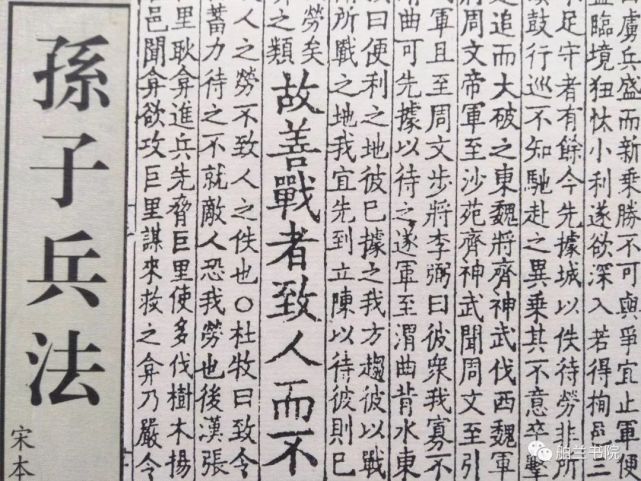 虜兵盛而新乗勝不可與爭宜止軍便
臨境狃忕小利遂欲深入若得栒邑三
足守者有餘今先據城以佚待勞非所
鼓行巡不知馳赴之異乗其不意卒擊
追而大破之東魏將齊神武伐西魏軍
將周文帝軍至沙苑齊神武聞周文至引
軍且至周文步將李弼曰彼衆我寡不
渭曲可先據以待之遂軍至渭曲背水東
曰便利之地彼已據之我方趨彼以戰
所戰之地我宜先到立陳以待彼則已
勞矣
之類
故善戰者致人而不
人之勞不致人之佚也○杜牧曰致令
蓄力待之不就敵人恐我勞也後漢張
里耿弇進兵先脅巨里使多伐樹木揚
邑聞弇欲攻巨里謀來救之弇乃嚴令
孫子兵法
宋本
船兰书院